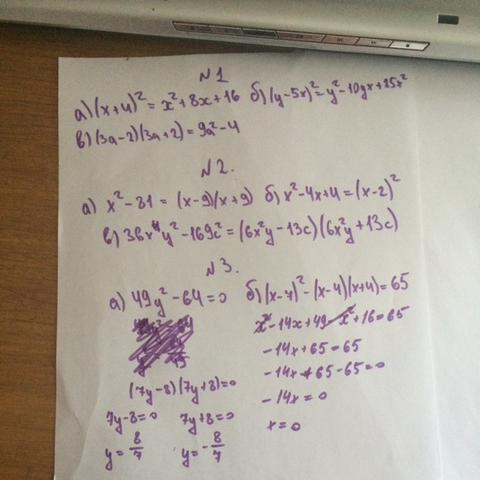 №1
а) (x+4)² = x²+8x+16 б) (y-5x)² = y²-10yx+25x²
в) (3a-2)(3a+2) = 9a²-4
№2.
а) x²-81 = (x-9)(x+9) б) x²-4x+4 = (x-2)²
в) 36x⁴y²-169c² = (6x²y-13c)(6x²y+13c)
№3.
а) 49y²-64=0 б) (x-7)²-(x-4)(x+4)=65
x²-14x+49-x²+16=65
-14x+65=65
(7y-8)(7y+8)=0 -14x+65-65=0
7y-8=0 7y+8=0 -14x=0
y=8/7 y=-8/7 x=0